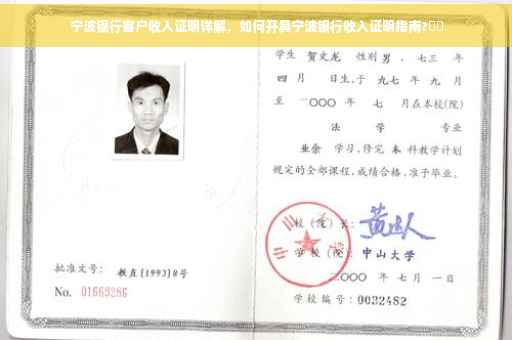 宁波银行客户收入证明详解，如何开具宁波银行收入证明指南?▯▯
学生 贺文龙 性别 男，七三 年
四 月 日生，于 九七 年 九 月
至 二〇〇〇 年 七 月在本校(院)
法 学 专业
业余 学习，修完 本 科教学计划
规定的全部课程，成绩合格，准予毕业。
校 (院) 长：
学 校 (院)： 中山大学
二〇〇〇 年 七 月 一 日
批准文号： 教直 [1993] 8号
No. 01663286
学校编号：0032482